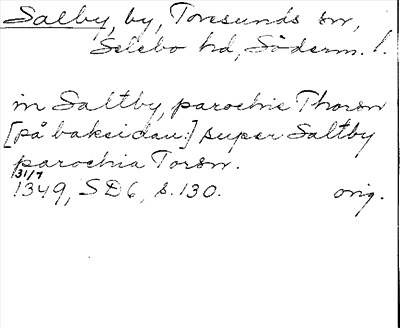 Salby, by, Toresunds sn,
Selebo hd, Söderm. l.
in Saltby, parochie Thorsn
[på baksidan:] super Saltby
parochia Torsn.
31/7
1349, SD6, s. 130. orig.